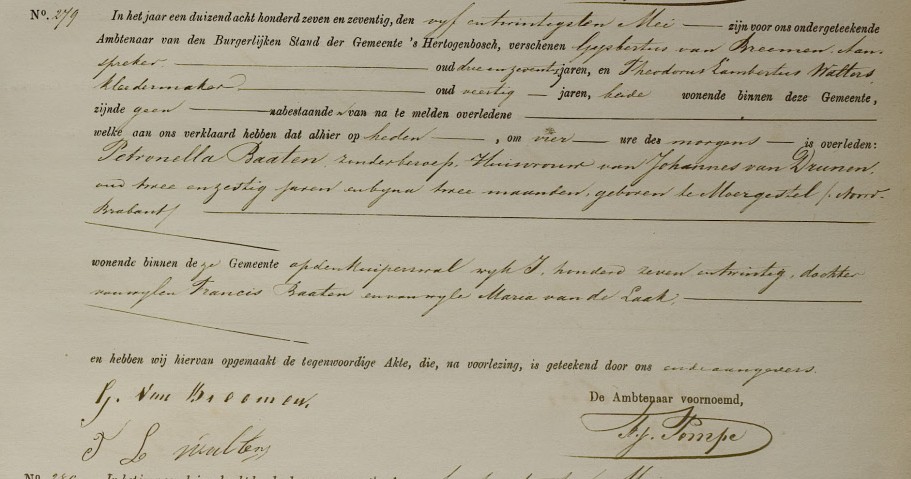 No. 279 In het jaar een duizend acht honderd zeven en zeventig, den vyf en twintigsten Mei zijn voor ons ondergeteekende
Ambtenaar van den Burgerlijken Stand der Gemeente 's Hertogenbosch, verschenen Gysbertus van Breemen, Aan-
spreker oud drie en zeventig jaren, en Theodorus Lambertus Walters,
kleedermaker oud veertig jaren, beide wonende binnen deze Gemeente,
zijnde geen nabestaande van na te melden overledene
welke aan ons verklaard hebben dat alhier op heden, om vier ure des morgens is overleden:
Petronella Baaten zonder beroep, Huisvrouw van Johannes van Drunen,
oud twee en zestig jaren en byna twee maanden, geboren te Moergestel (Noord-
Brabant)
wonende binnen deze Gemeente op den Kuiperswal wyk I, honderd zeven en twintig, dochter
van wylen Francis Baaten en van wyle Maria van de Laak,
en hebben wij hiervan opgemaakt de tegenwoordige Akte, die, na voorlezing, is geteekend door ons en de aangevers.
De Ambtenaar voornoemd,
G. Van Breemen.
T L Walters
Pompe
No.